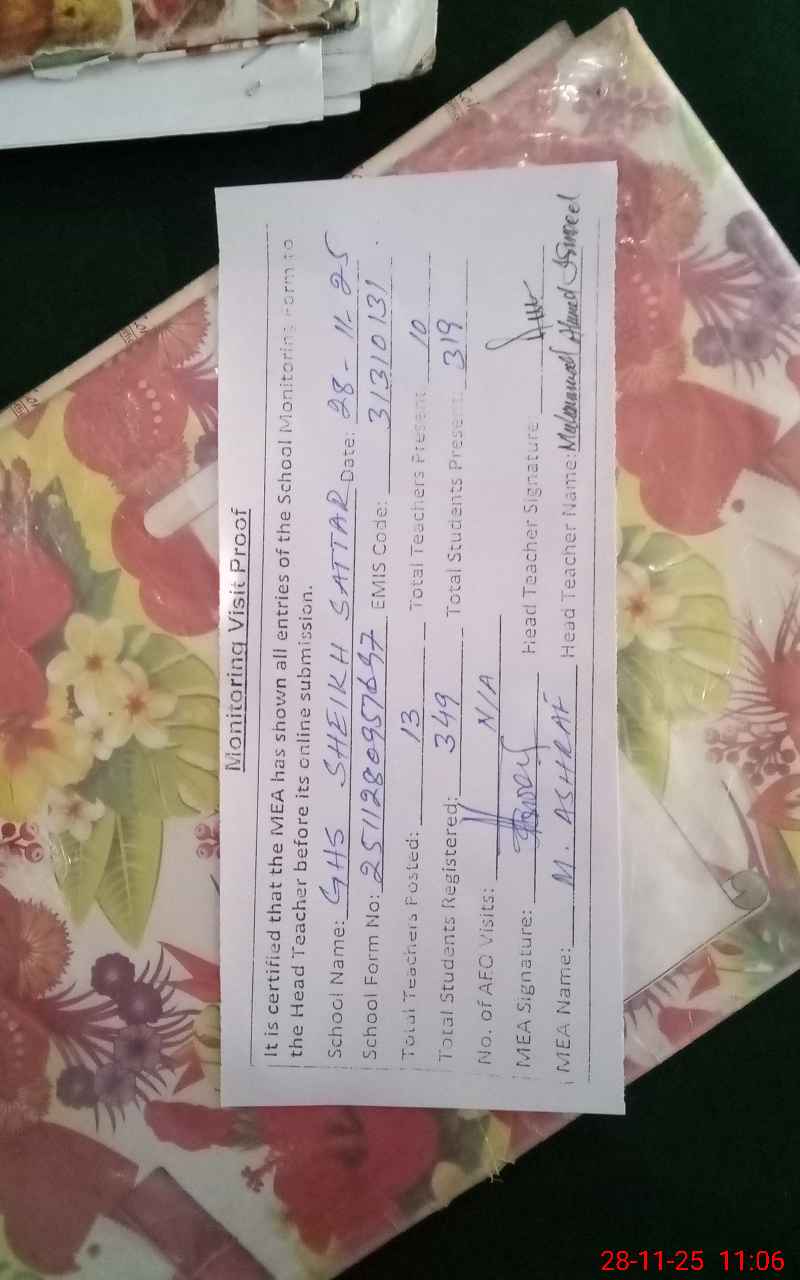 Monitoring Visit Proof
It is certified that the MEA has shown all entries of the School Monitoring Form to
the Head Teacher before its online submission.
School Name: GHS SHEIKH SATTAR Date: 28-11-25
School Form No: 25112809957697 EMIS Code: 31310131
Total Teachers Posted: 13 Total Teachers Present: 10
Total Students Registered: 349 Total Students Present: 319
No. of AEO Visits: N/A
MEA Signature: Head Teacher Signature:
MEA Name: M. ASHRAF Head Teacher Name: Muhammad Ahmed
28-11-25 11:06